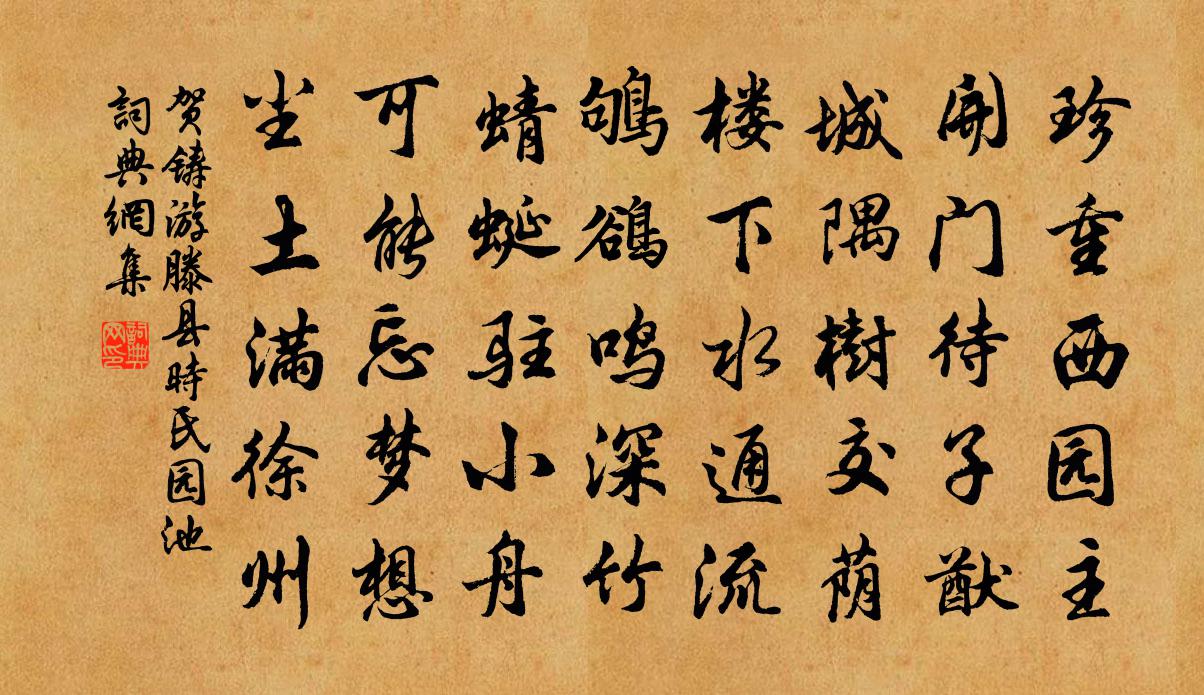 珍重西园主
開门待子猷
城隅樹交荫
楼下水通流
鴝鹆鸣深竹
蜻蜓驻小舟
可能忘梦想
尘土满徐州
贺铸游滕县時民园池
詞典網集
詞典网印